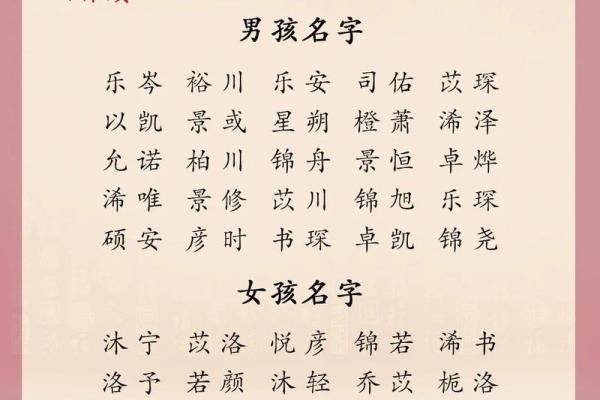 男孩名字
乐岑 裕川 乐安 司佑 苡琛
以凯 景或 星朔 橙萧 浠泽
允诺 柏川 锦舟 景恒 卓烨
浠唯 景修 苡川 锦旭 乐琛
硕安 彦时 书琛 卓凯 锦尧
女孩名字
沐宁 苡洛 悦彦 锦若 浠书
洛予 若颜 沐轻 乔苡 栀洛